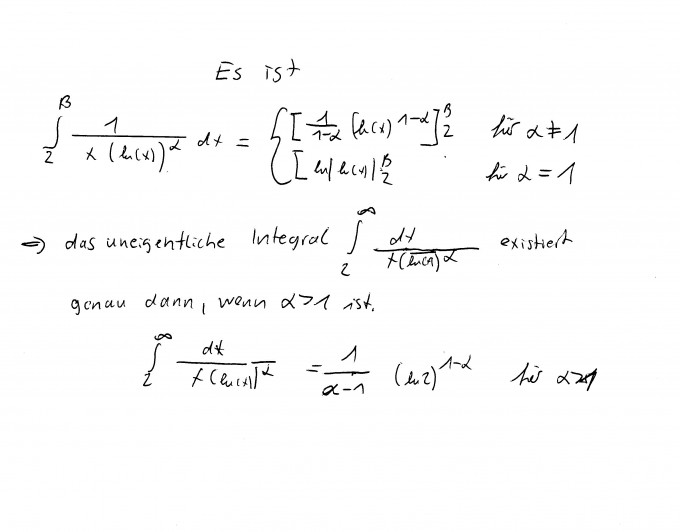 Es ist
∫_2^β 1/(x (ln(x))^α) dx = { [1/(1-α) (ln(x))^(1-α)]_2^β für α ≠ 1
[ln|ln(x)|]_2^β für α = 1
⇒ das uneigentliche Integral ∫_2^∞ dx/(x(ln(x))^α) existiert
genau dann, wenn α>1 ist.
∫_2^∞ dx/(x(ln(x))^α) = 1/(α-1) (ln2)^(1-α) für α>1